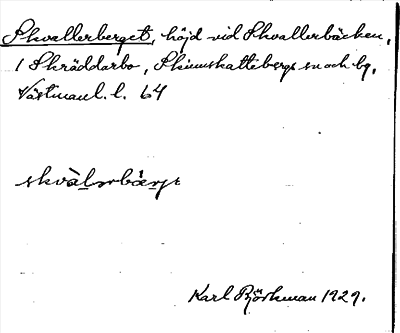 Skvallerberget, höjd vid Skvallerbäcken,
i Skräddarbo, Skinnskattebergs sn och bg,
Västmanl. l. 64
skvàlərbær̥jt
Karl Björkman 1929.